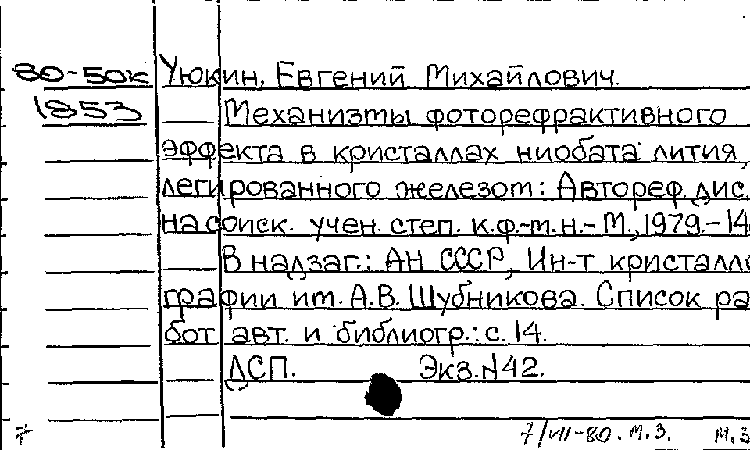 80-50к Уюкин, Евгений Михайлович.
1853 Механизмы фоторефрактивного
эффекта в кристаллах ниобата лития,
легированного железом: Автореф. дис.
на соиск. учен. степ. к.ф.-м.н.- М., 1979.- 14
В надзаг.: АН СССР, Ин-т кристалло
графии им. А.В. Шубникова. Список ра
бот авт. и библиогр.: с. 14.
ДСП. Экз. №42.
7/VII-80. М.З. М.З